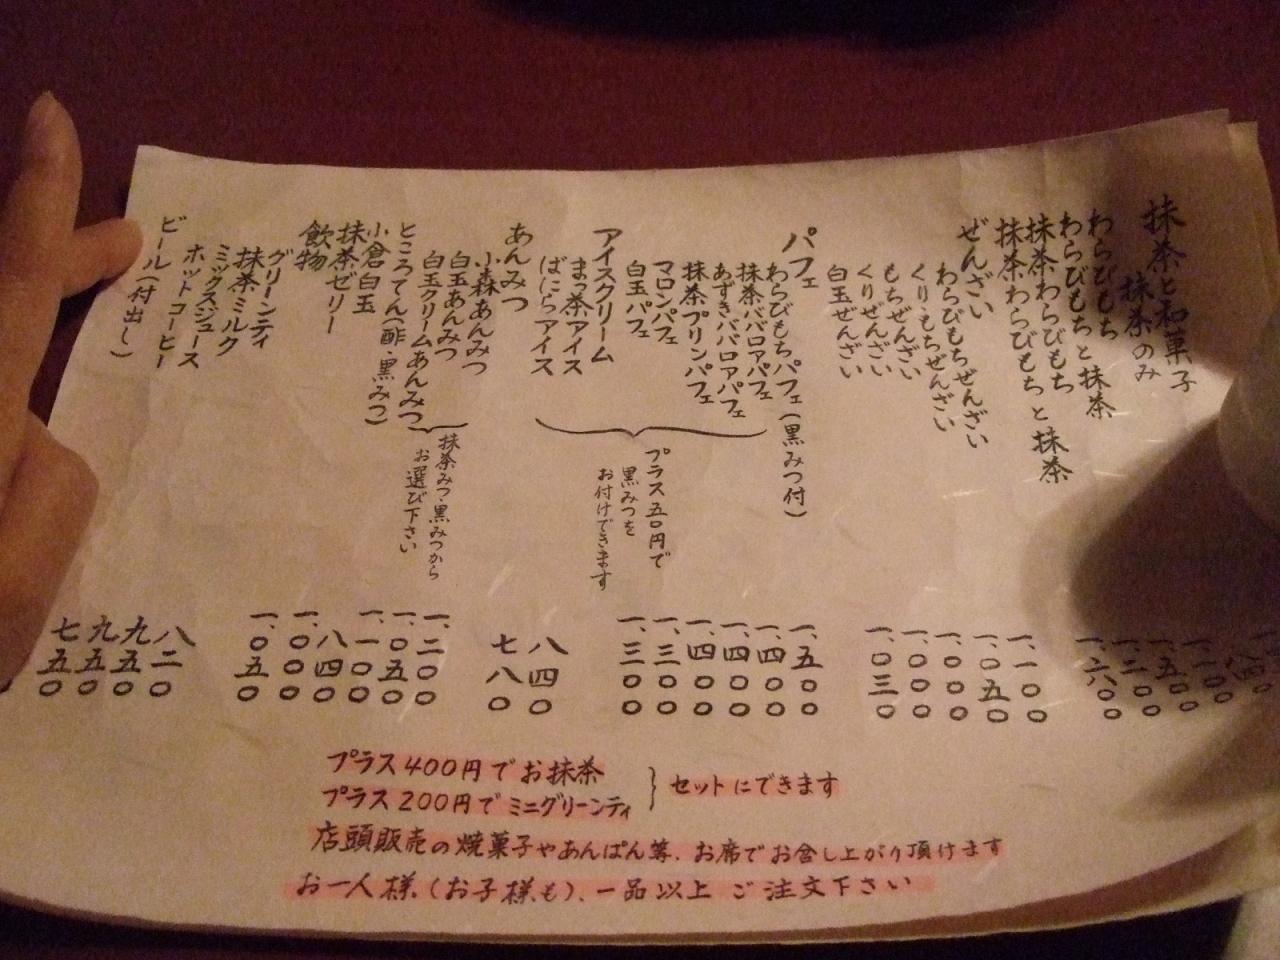 抹茶と和菓子
抹茶のみ
わらびもち
わらびもちと抹茶
抹茶わらびもち
抹茶わらびもちと抹茶
ぜんざい
わらびもちぜんざい
くりもちぜんざい
もちぜんざい
くりぜんざい
白玉ぜんざい
パフェ
わらびもちパフェ(黒みつ付)
抹茶ババロアパフェ
あずきババロアパフェ
抹茶プリンパフェ
マロンパフェ
白玉パフェ
プラス五〇円で
黒みつを
お付けできます
アイスクリーム
まっ茶アイス
ばにらアイス
あんみつ
小森あんみつ
白玉あんみつ
白玉クリームあんみつ
抹茶みつ・黒みつから
お選び下さい
ところてん(酢・黒みつ)
小倉白玉
抹茶ゼリー
飲物
グリーンティ
抹茶ミルク
ミックスジュース
ホットコーヒー
ビール(付出し)
一、一〇〇
一、五〇〇
一、二〇〇
一、六〇〇
一、一〇〇
一、〇五〇
一、〇〇〇
一、〇〇〇
一、〇三〇
一、五〇〇
一、四〇〇
一、四〇〇
一、四〇〇
一、三〇〇
一、三〇〇
八四〇
七八〇
一、二〇〇
一、〇五〇
一、一〇〇
八四〇
一、〇〇〇
一、〇五〇
八二〇
九五〇
九五〇
七五〇
プラス400円でお抹茶
プラス200円でミニグリーンティ
セットにできます
店頭販売の焼菓子やあんぱん等、お席でお召し上がり頂けます
お一人様(お子様も)、一品以上ご注文下さい